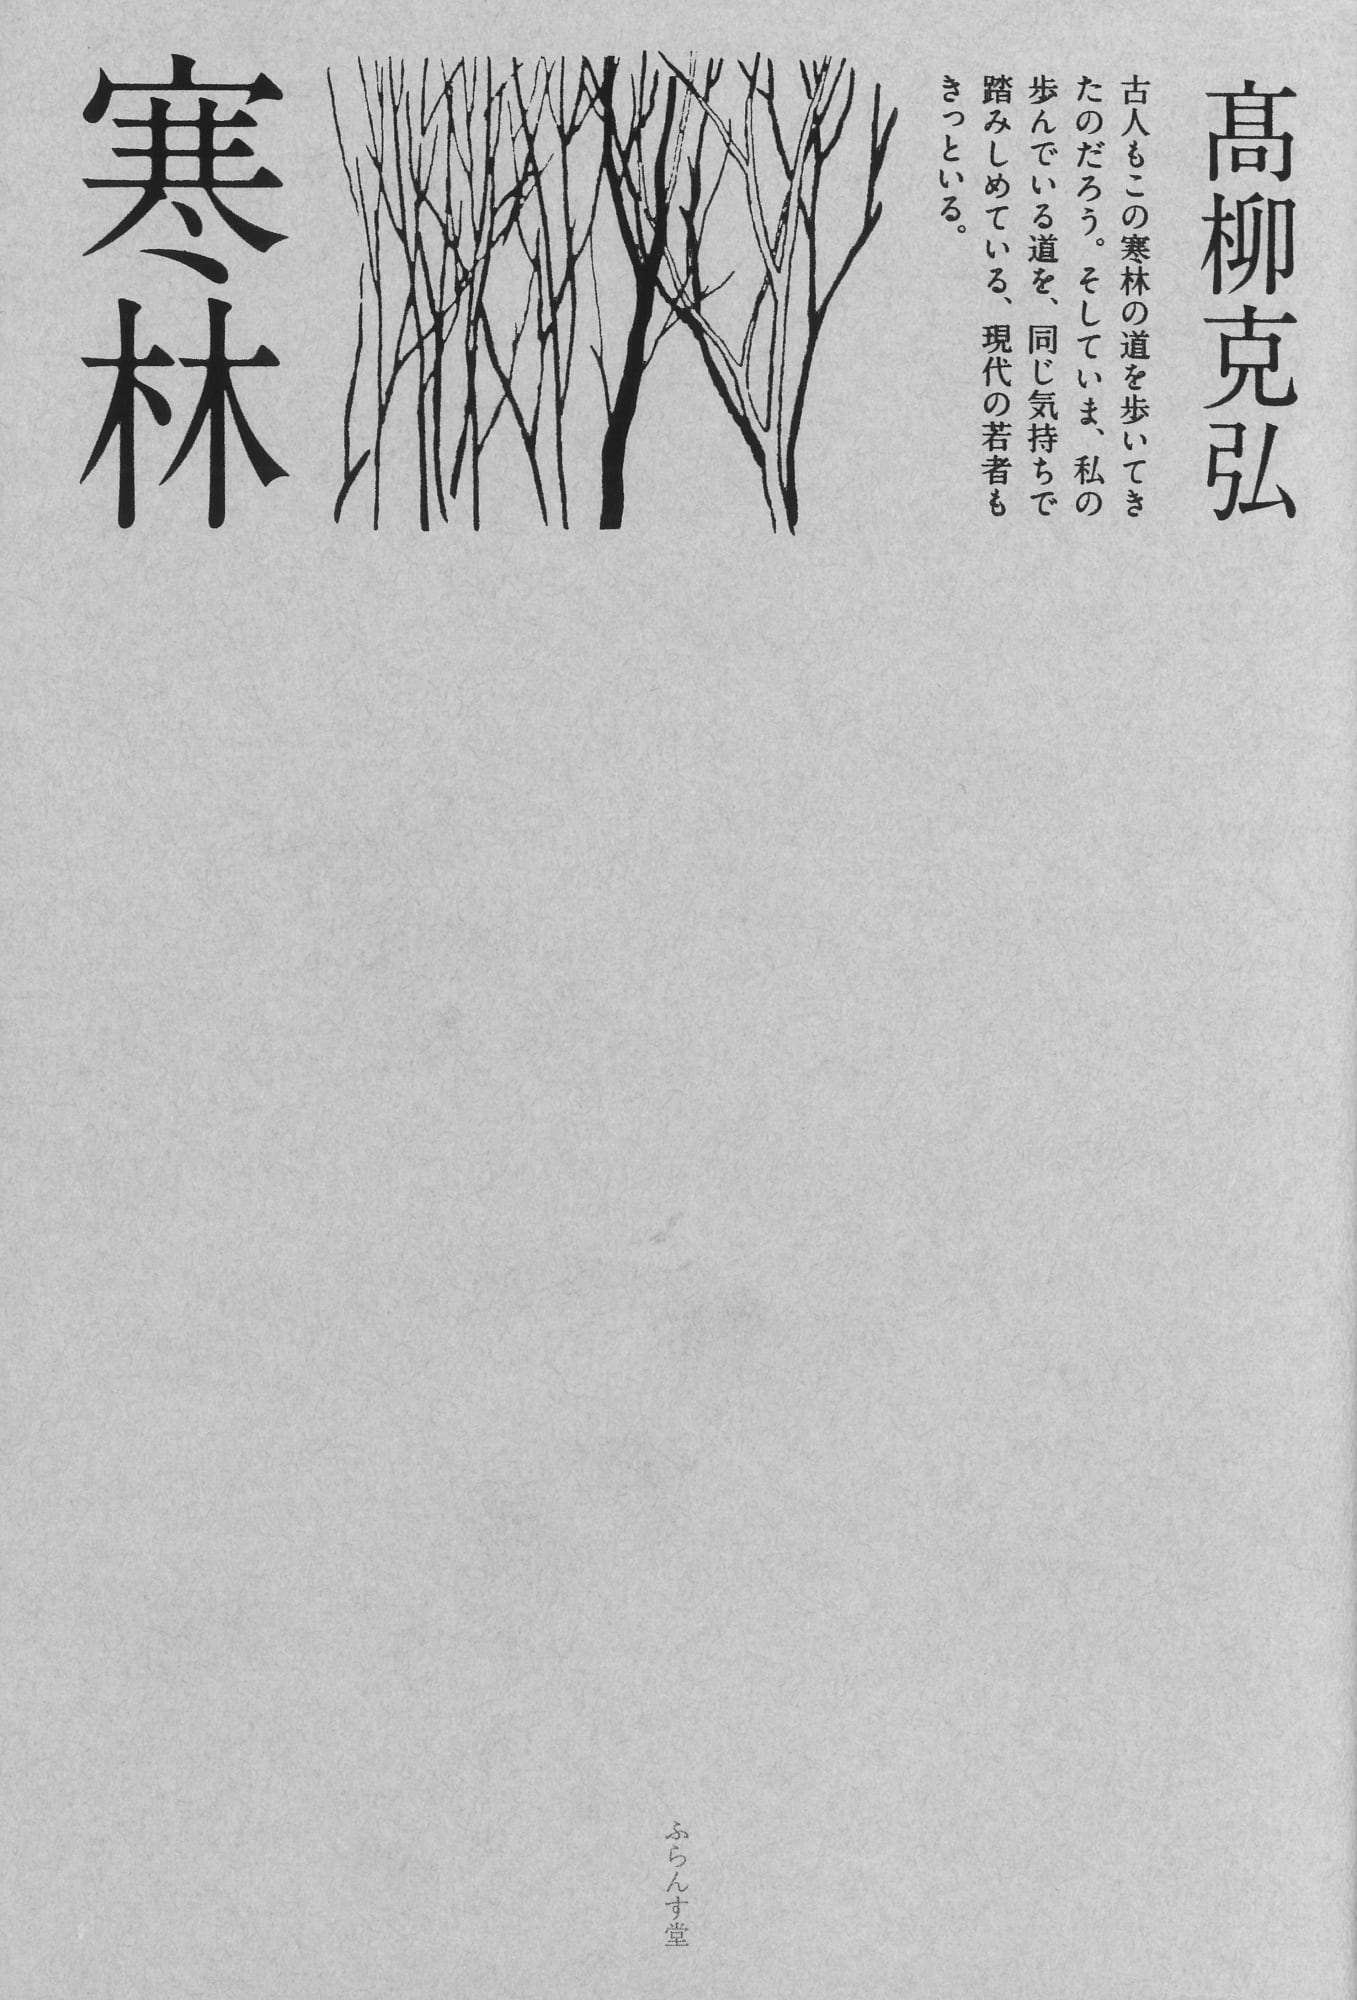 髙柳克弘
古人もこの寒林の道を歩いてき
たのだろう。そしていま、私の
歩んでいる道を、同じ気持ちで
踏みしめている、現代の若者も
きっといる。
寒林
ふらんす堂